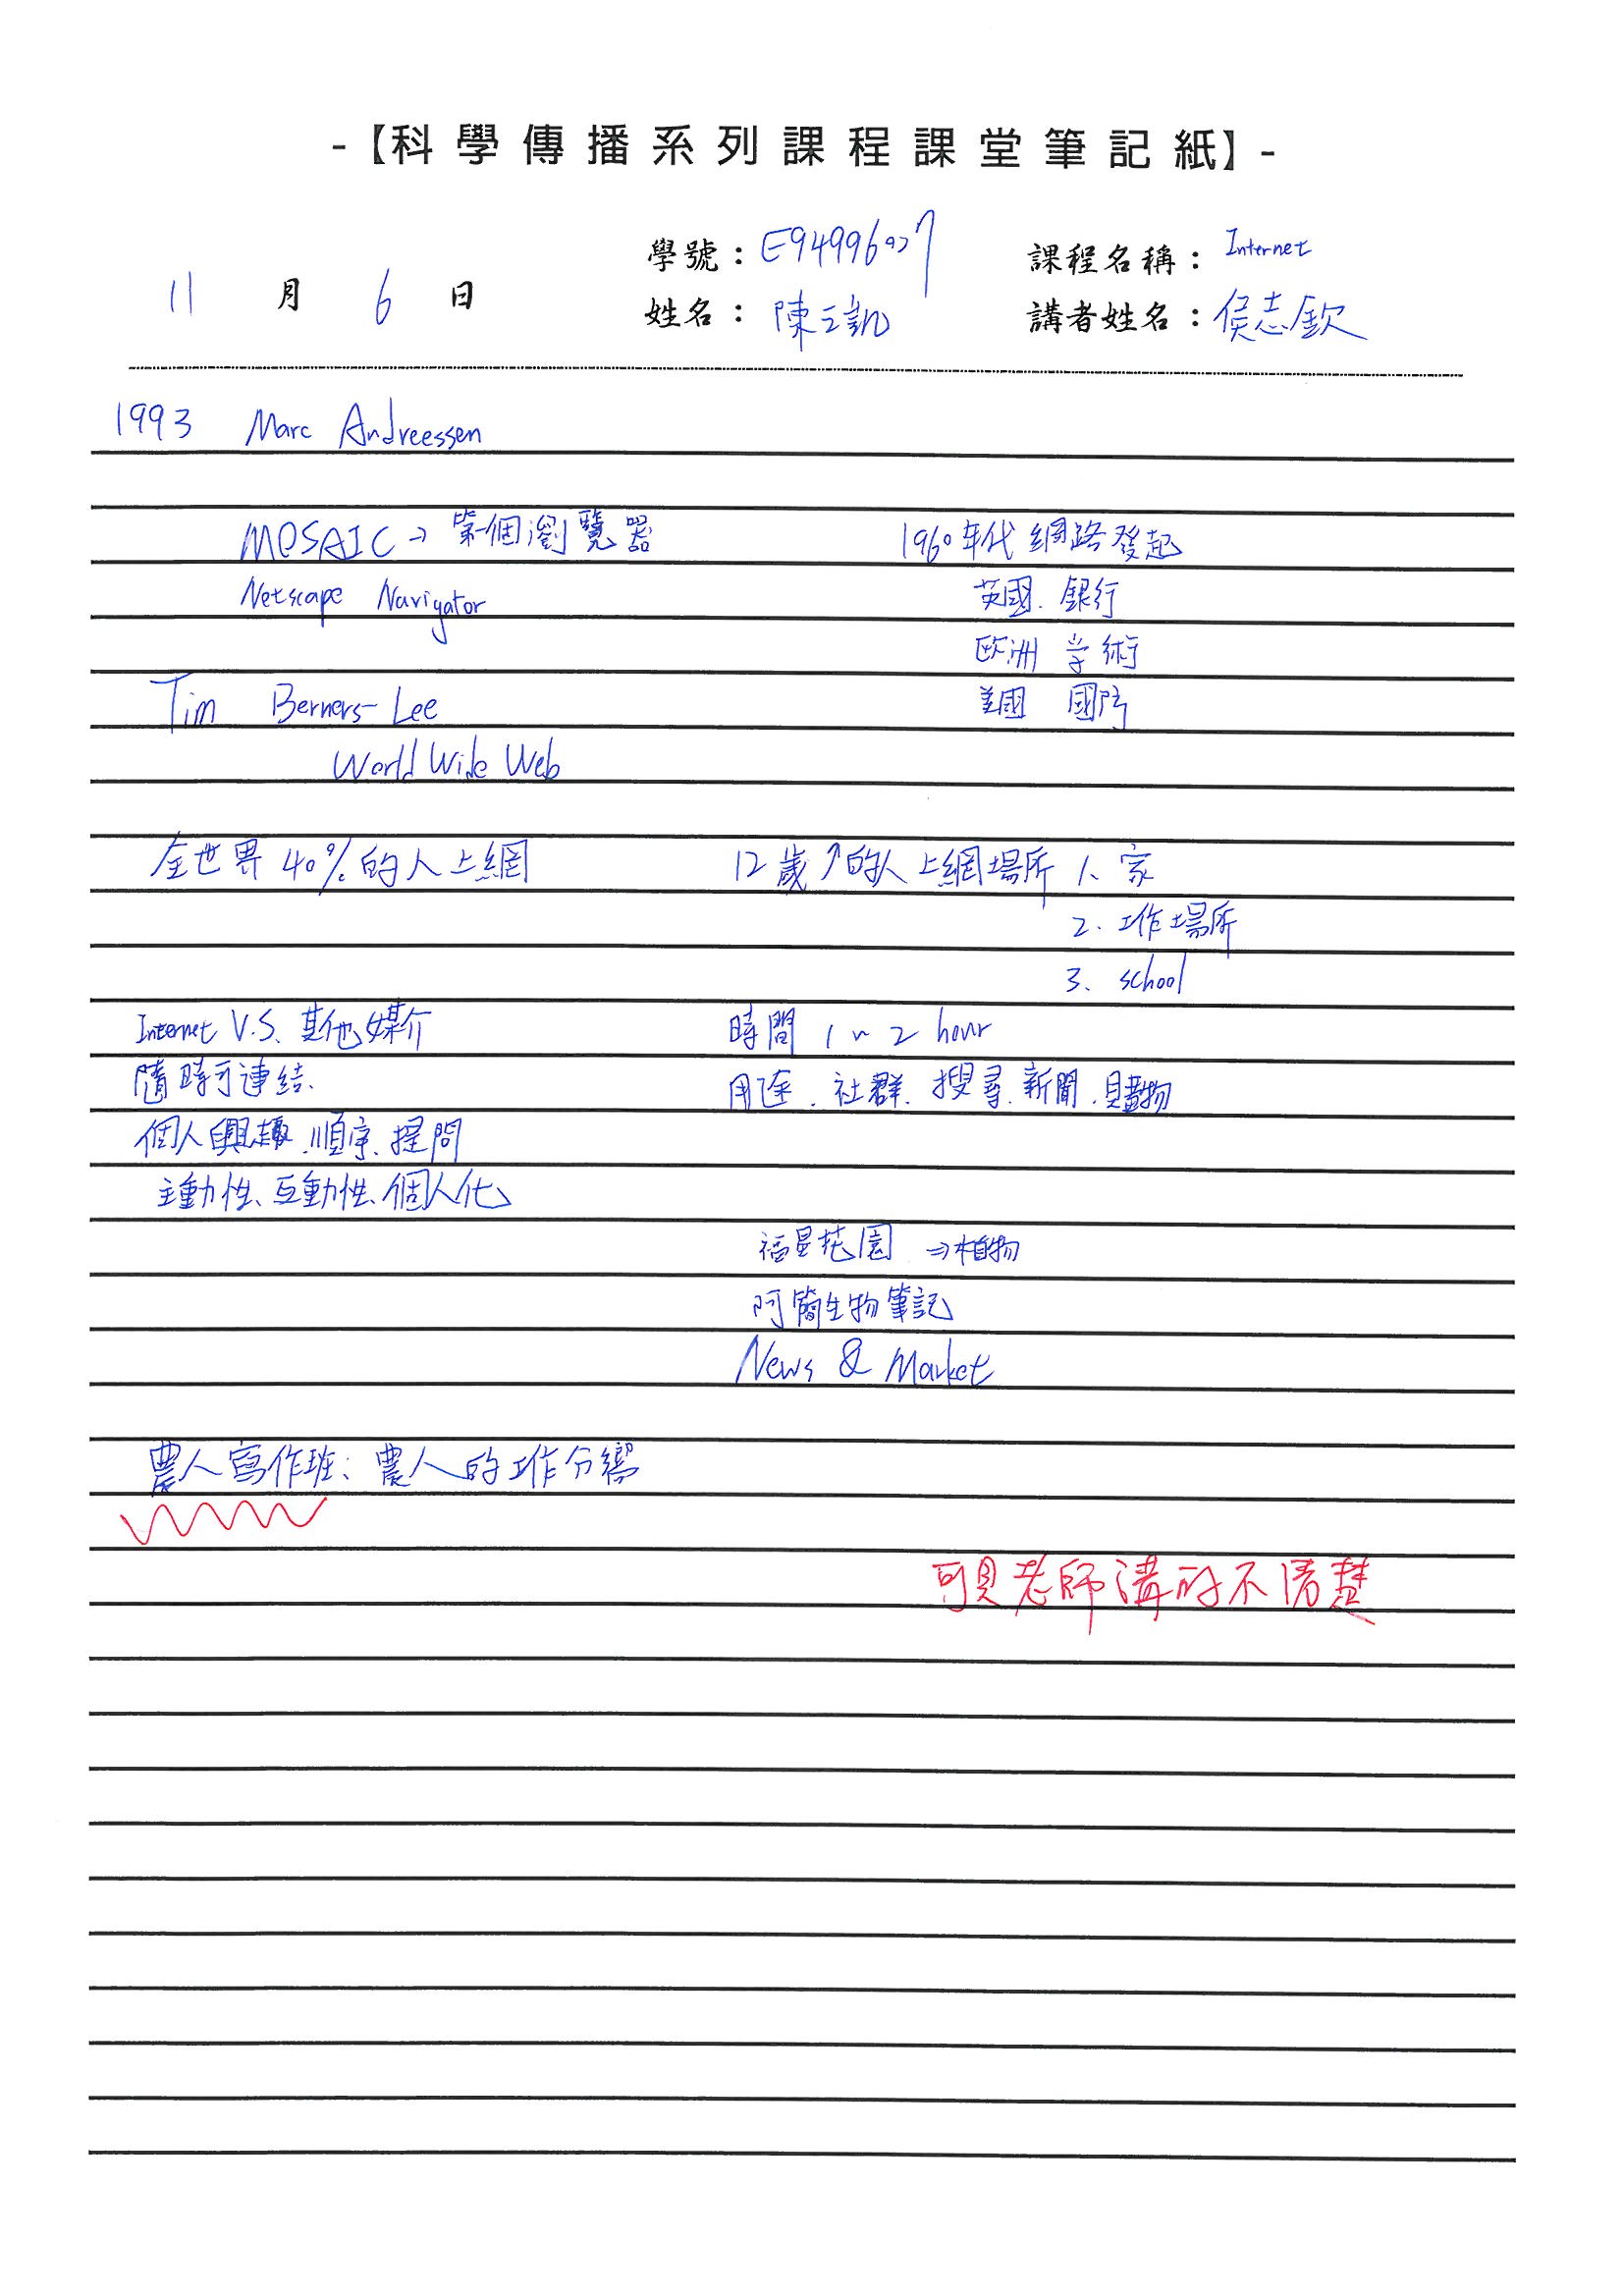 -【科學傳播系列課程課堂筆記紙】-
11 月 6 日
學號：E94996027 課程名稱：Internet
姓名：陳立凱 講者姓名：侯志欽
1993 Marc Andreessen
MOSAIC → 第一個瀏覽器 1960年代網路發起
Netscape Navigator 英國、銀行
歐洲 学術
Tim Berners-Lee 美國 國防
World Wide Web
全世界40%的人上網 12歲↑的人上網場所 1、家
2、工作場所
3、school
Internet V.S. 其他媒介 時間 1~2 hour
隨時可連結、 用途、社群、搜尋、新聞、購物
個人興趣、順序、提問
主動性、互動性、個人化
福星花園 ⇒植物
阿簡生物筆記
News & Market
農人寫作班：農人的工作分嚮
可見老師講的不清楚